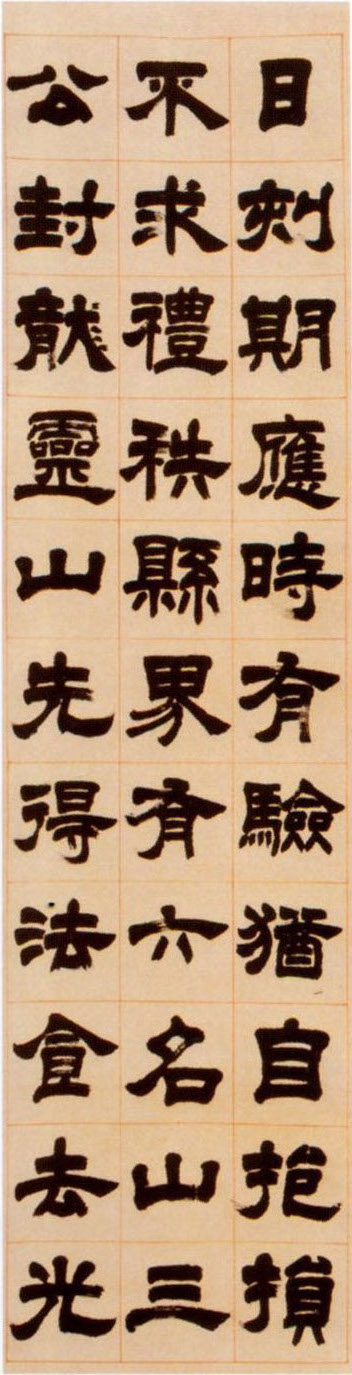 日刻期應時有驗猶自挹損
不求禮秩縣界有六名山三
公封龍靈山先得法食去光